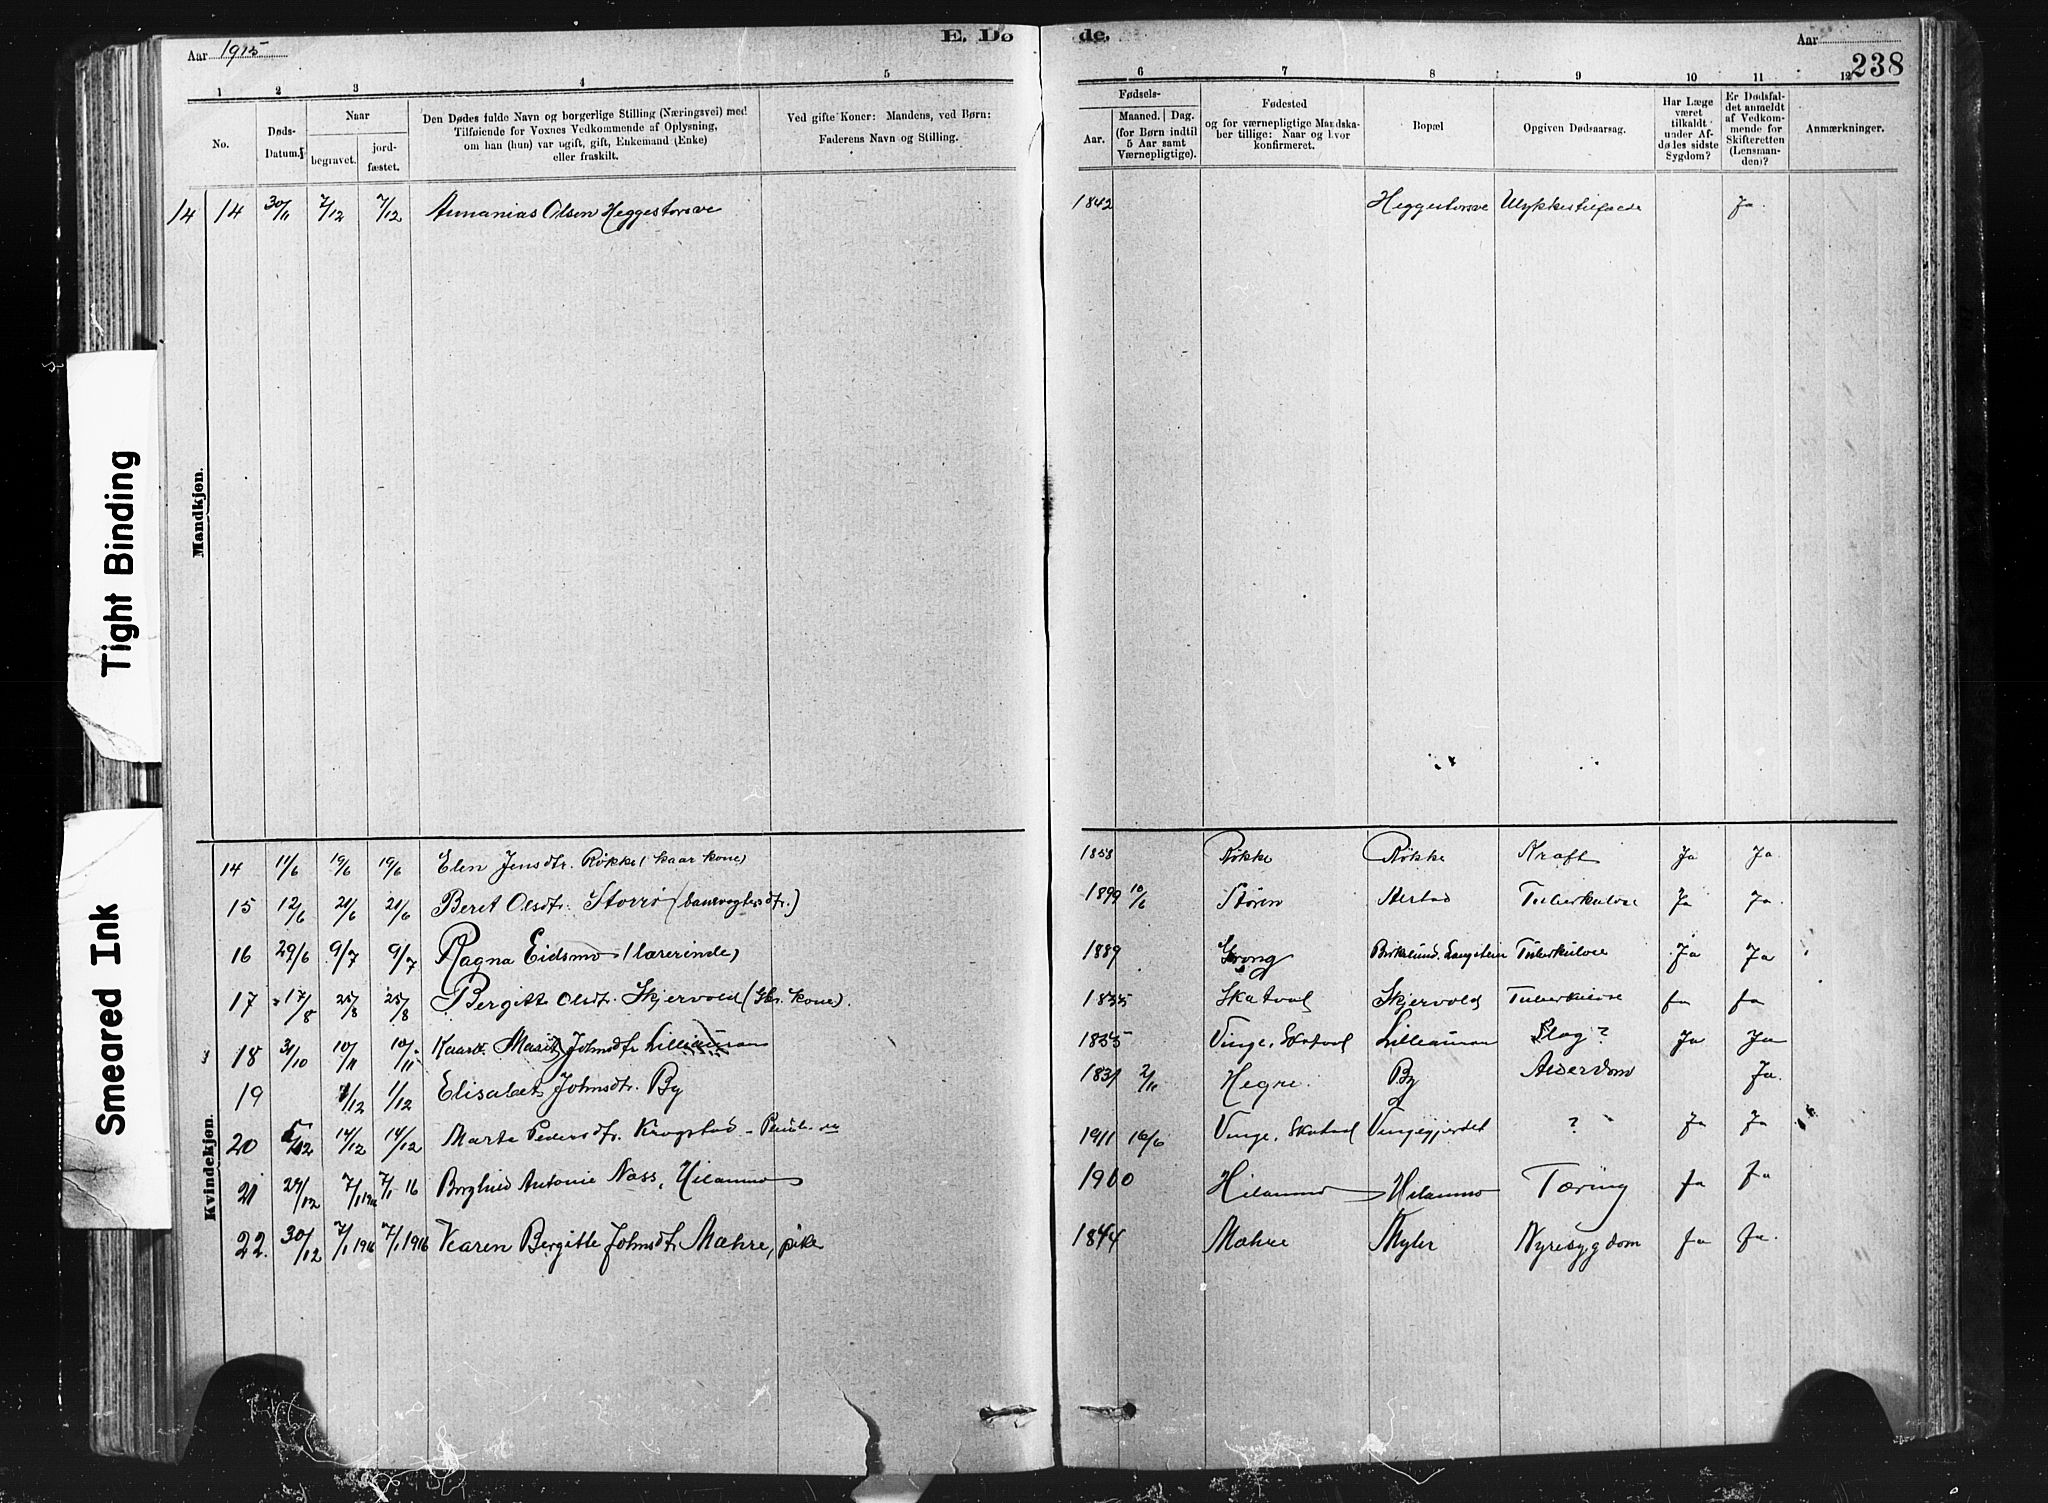 Aar 1915
E. Dø de.
Aar
238
1 2 3 4 5 6 7 8 9 10 11 12
No.
Døds-Datum.
Naar
begravet.
jord-fæstet.
Den Dødes fulde Navn og borgerlige Stilling (Næringsvei) med
Tilføiende for Voxnes Vedkommende af Oplysning,
om han (hun) var ugift, gift, Enkemand (Enke)
eller fraskilt.
Ved gifte Koner: Mandens, ved Børn:
Faderens Navn og Stilling.
Fødsels-
Aar.
Maaned. Dag.
(for Børn indtil
5 Aar samt
Værnepligtige).
Fødested
og for værnepligtige Mandska-
ber tillige: Naar og hvor
konfirmeret.
Bopæl
Opgiven Dødsaarsag.
Har Læge
været
tilkaldt
under Af-
dødes sidste
Sygdom?
Er Dødsfal-
det anmeldt
af Vedkom-
mende for
Skifteretten
(Lensman-
den)?
Anmærkninger.
Mandkjøn.
14 14 30/11 7/12 7/12 Annanias Olsen Heggestorsve 1842 Heggestorsve Ulykkestilfælde Ja.
Kvindekjøn.
14 11/6 19/6 19/6 Elen Jensdtr. Røkke (kaarkone) 1858 Røkke Røkke Kræft Ja Ja.
15 12/6 21/6 21/6 Beret Olsdtr. Storrø (banevogtersdtr.) 1899 10/6 Støren Tuberkulose Ja Ja.
16 29/6 9/7 9/7 Ragna Eidsmo (lærerinde) 1889 Grong Birkelund, Langstein Tuberkulose Ja Ja
17 17/8 25/8 25/8 Bergitte Olsdtr. Skjervold (Gbr. kone). Skatval Skjervold Tuberkulose Ja Ja
18 31/10 10/11 10/11 Kaark. Marit Johnsdtr Lilleaunan 1835 Vinge, Skatval Lilleaunan Slag? Ja Ja
19 1/12 1/12 Elisabet Johnsdtr. By 1831 2/11 Hegre. By Alderdom Ja.
20 5/12 14/12 14/12 Marta Pedersdtr. Krogstad 1911 16/6 Vinge, Skatval Vingegjerdet ? Ja Ja
21 29/12 7/1 1916 7/1 16 Borghild Antonie Nass, Hilammo Hilammo Hilammo Tæring Ja Ja
22. 30/12 7/1 1916 7/1 1916 Karen Bergitte Johnsdtr. Mæhre, pike 1844 Mæhre Myhr Nyresygdom Ja Ja.
Tight Binding
Smeared Ink